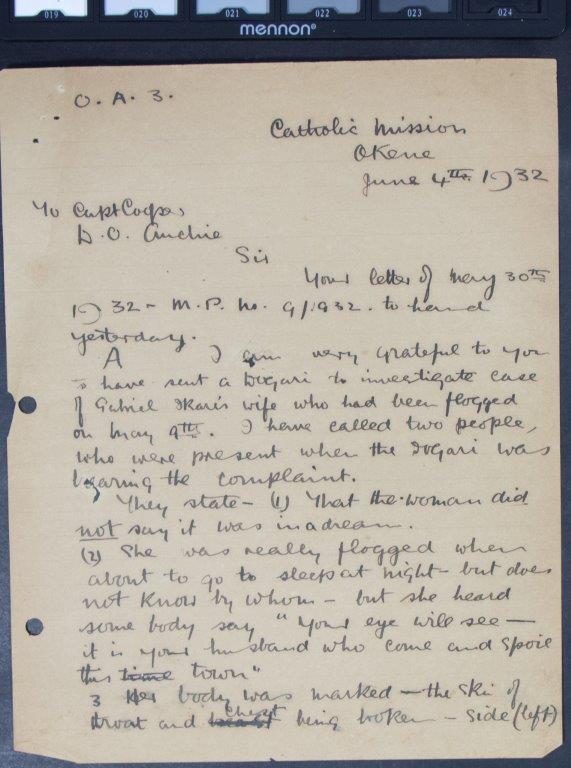 019 020 021 022 023 024
mennon
O. A. 3.
Catholic Mission
Okene
June 4th. 1932
To Capt Cooper
D.O. Auchie
Sir
Your letter of May 30th
1932 - M.P. No. 9/1932. to hand
yesterday.
A I am very grateful to you
to have sent a Dogari to investigate case
of Gabriel Ikari's wife who had been flogged
on May 9th. I have called two people,
who were present when the Dogari was
hearing the complaint.
They state - (1) That the woman did
not say it was in a dream.
(2) She was really flogged when
about to go to sleep at night - but does
not know by whom - but she heard
some body say "Your eye will see -
it is your husband who come and spoil
this time town"
3 Her body was marked - the skin of
throat and chest being broken - side (left)